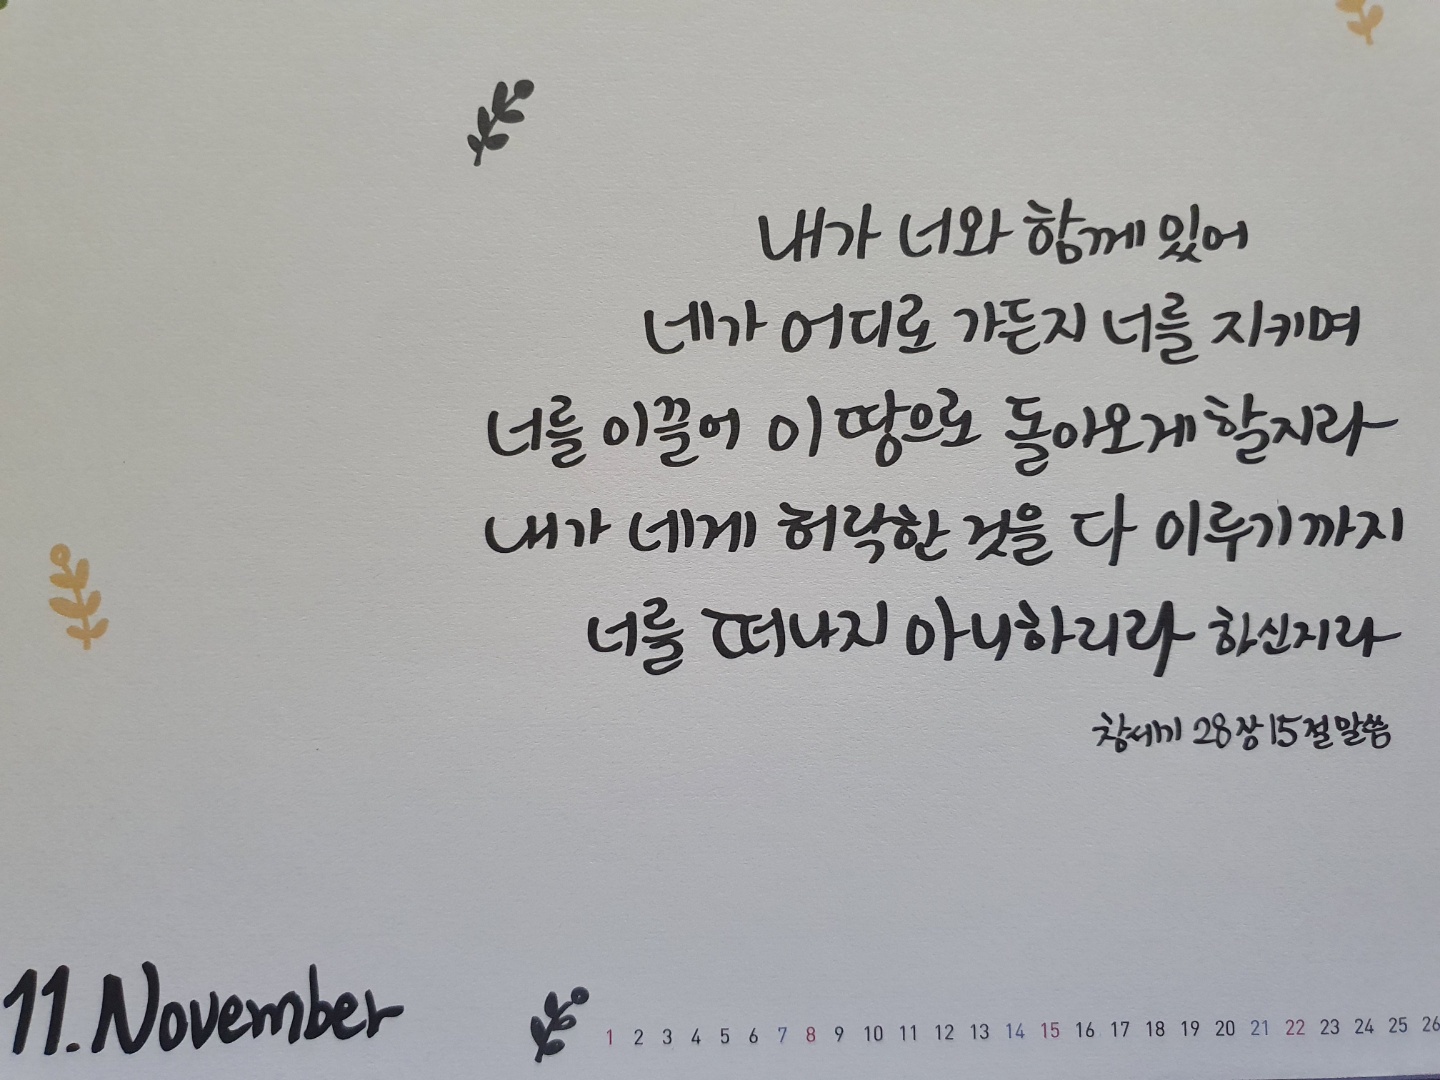 내가 너와 함께 있어
네가 어디로 가든지 너를 지키며
너를 이끌어 이 땅으로 돌아오게 할지라
내가 네게 허락한 것을 다 이루기까지
너를 떠나지 아니하리라 하신지라
창세기 28장 15절 말씀
11. November
1 2 3 4 5 6 7 8 9 10 11 12 13 14 15 16 17 18 19 20 21 22 23 24 25 26